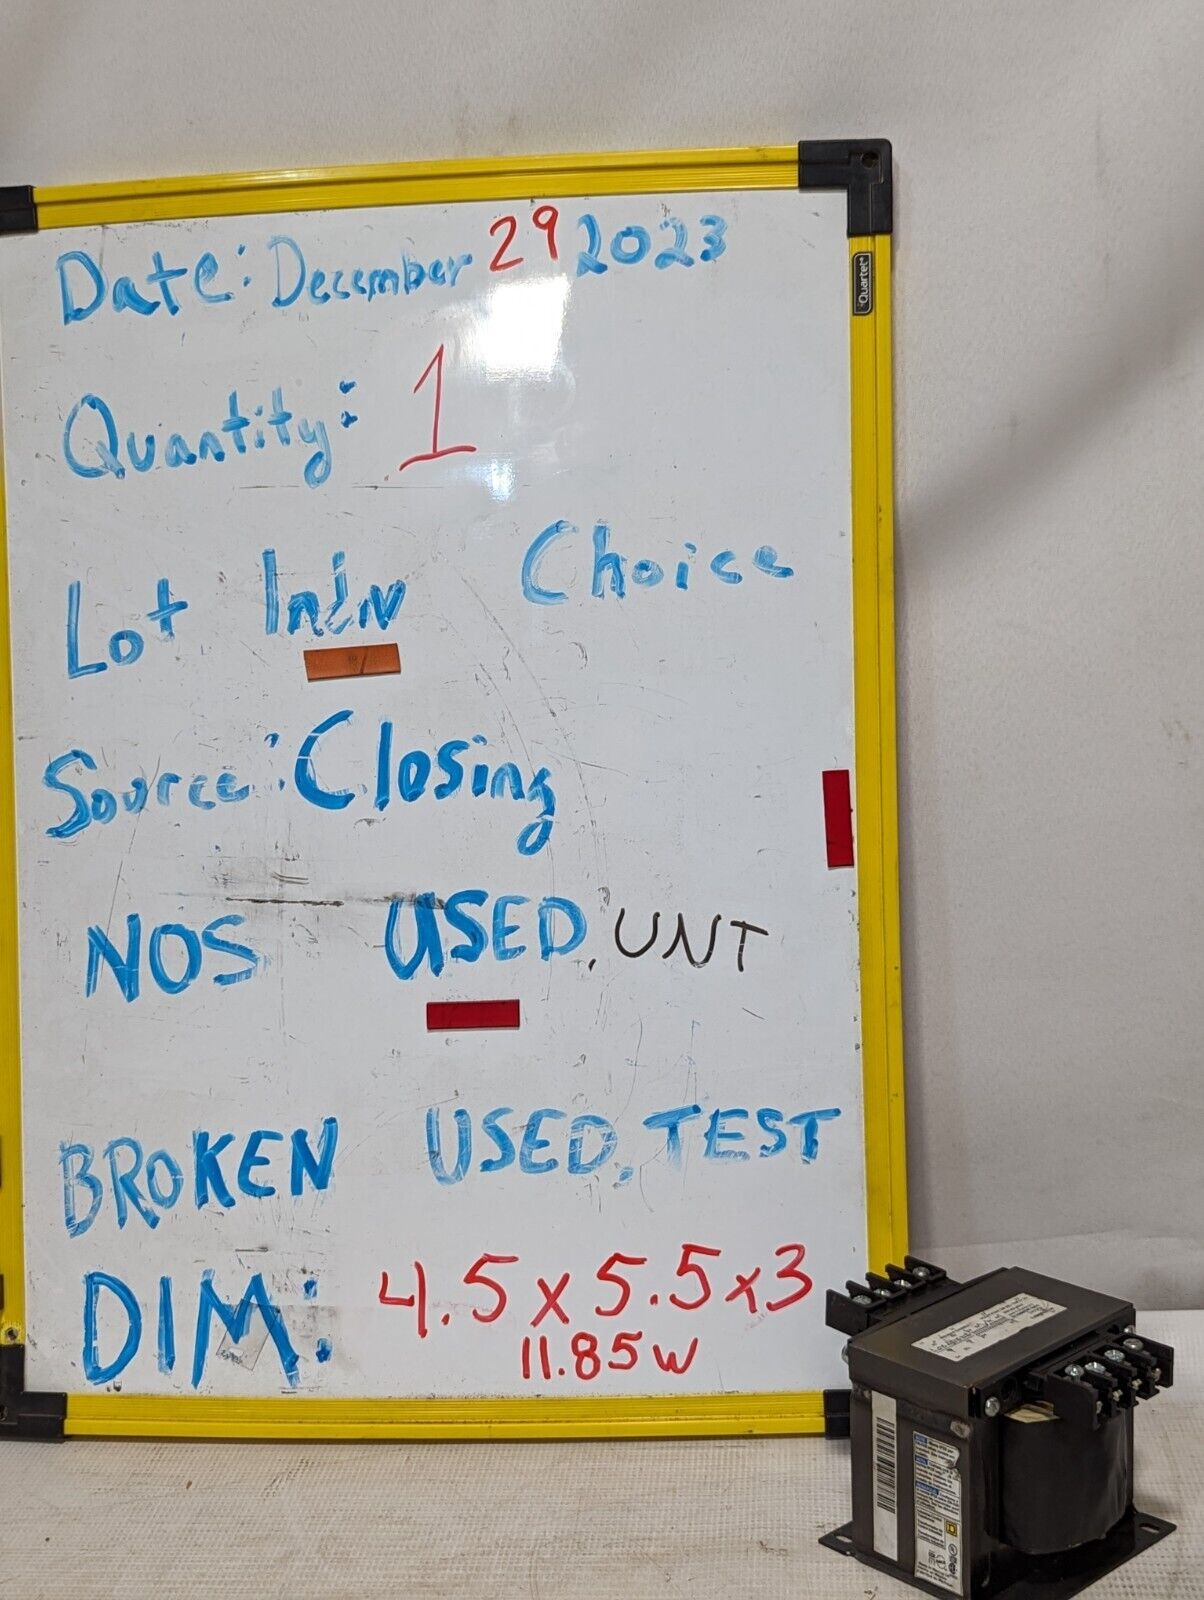 Date: December 29 2023
Quartet
Quantity: 1
Lot Indv Choice
Source: Closing
NOS USED, UNT
BROKEN USED, TEST
DIM: 4.5 x 5.5 x 3
11.85 W